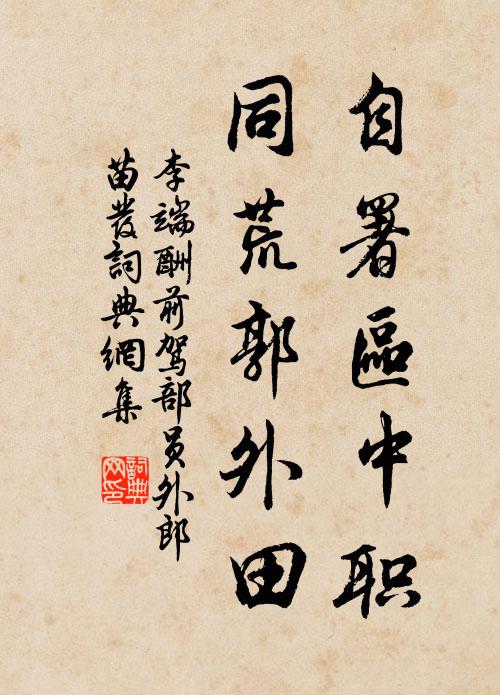 自署區中职
同荒郭外田
李端酬前驾部员外郎
苗發詞典網集
詞典网印